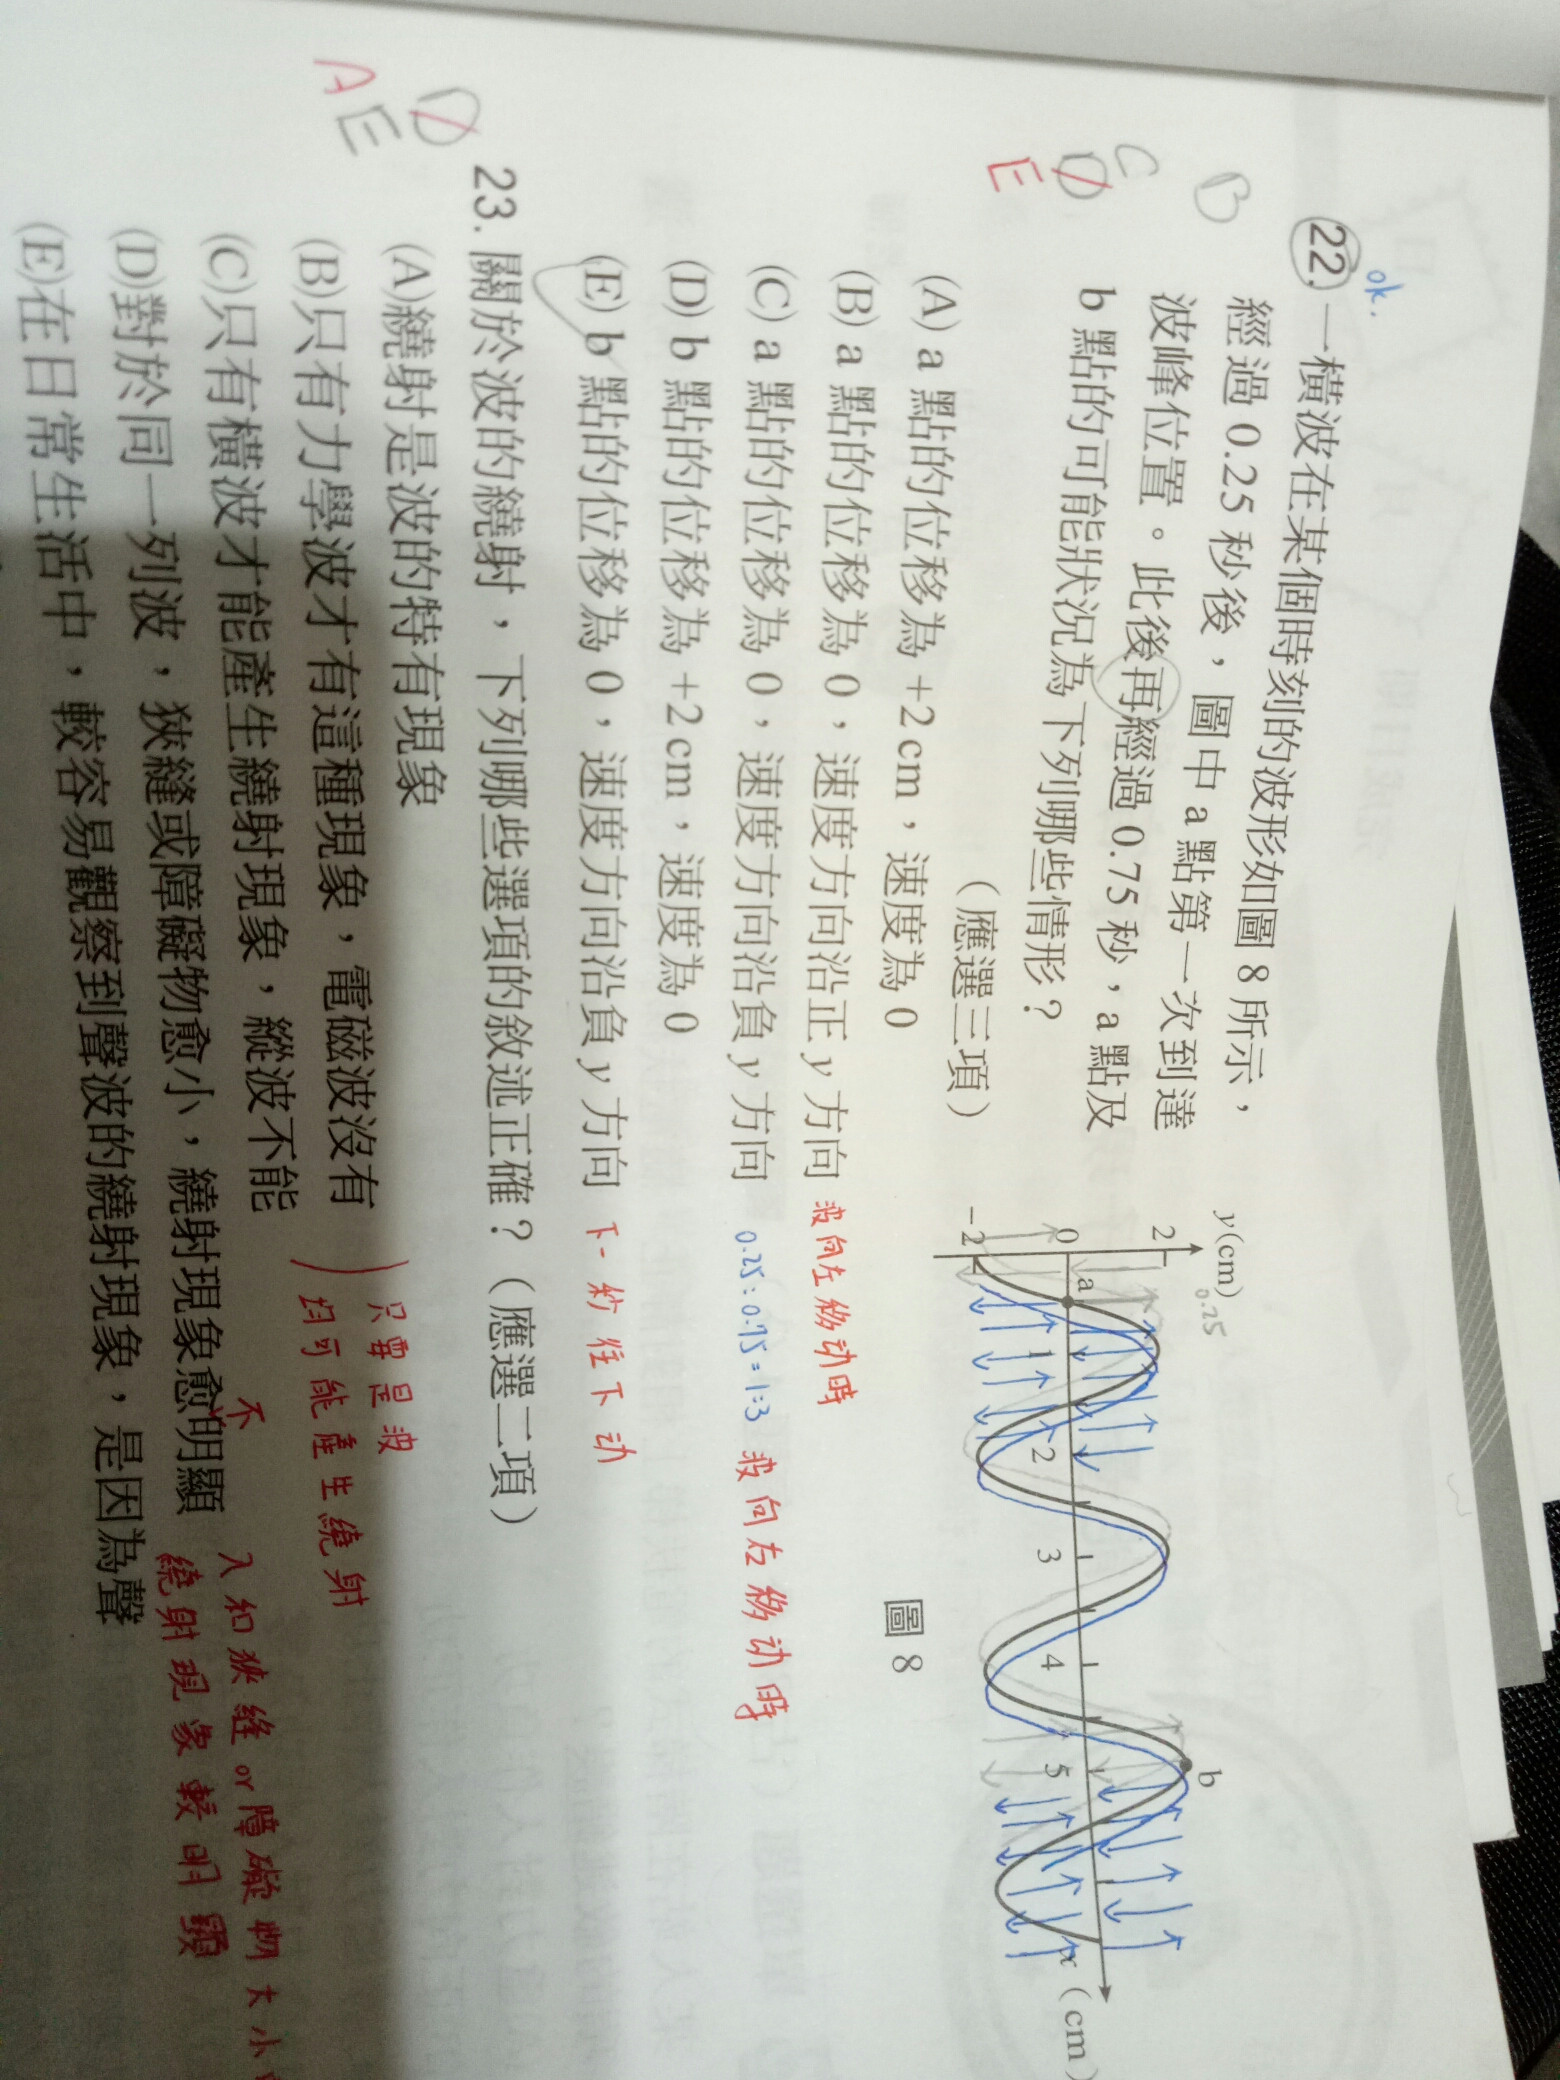 ok.
22. 一橫波在某個時刻的波形如圖 8 所示，
經過 0.25 秒後，圖中 a 點第一次到達
波峰位置。此後再經過 0.75 秒，a 點及
b 點的可能狀況為下列哪些情形？
（應選三項）
B
C
D
E
(A) a 點的位移為 +2 cm，速度為 0
(B) a 點的位移為 0，速度方向沿正 y 方向 波向左移动時
(C) a 點的位移為 0，速度方向沿負 y 方向 0.25:0.75=1:3 波向右移动時
(D) b 點的位移為 +2 cm，速度為 0
(E) b 點的位移為 0，速度方向沿負 y 方向 下一秒往下动
y(cm)
0.25
2
0
-2
a
1
2
3
4
5
b
x (cm)
圖 8
D
A E
23. 關於波的繞射，下列哪些選項的敘述正確？（應選二項）
(A)繞射是波的特有現象
(B)只有力學波才有這種現象，電磁波沒有
(C)只有橫波才能產生繞射現象，縱波不能
只要是波
均可能產生繞射
(D)對於同一列波，狹縫或障礙物愈小，繞射現象愈明顯
不
λ和狹縫or障礙物大小
繞射現象較明顯
(E)在日常生活中，較容易觀察到聲波的繞射現象，是因為聲